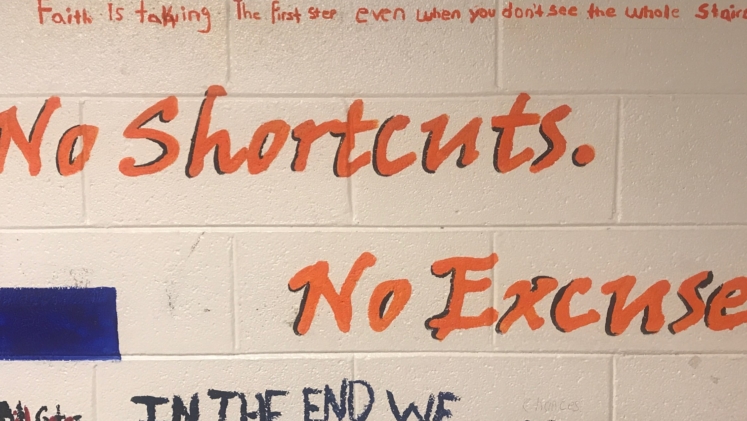 Faith Is taking The first step even when you don't see the whole Stairc
No Shortcuts.
No Excuse
IN THE END WE
Chances